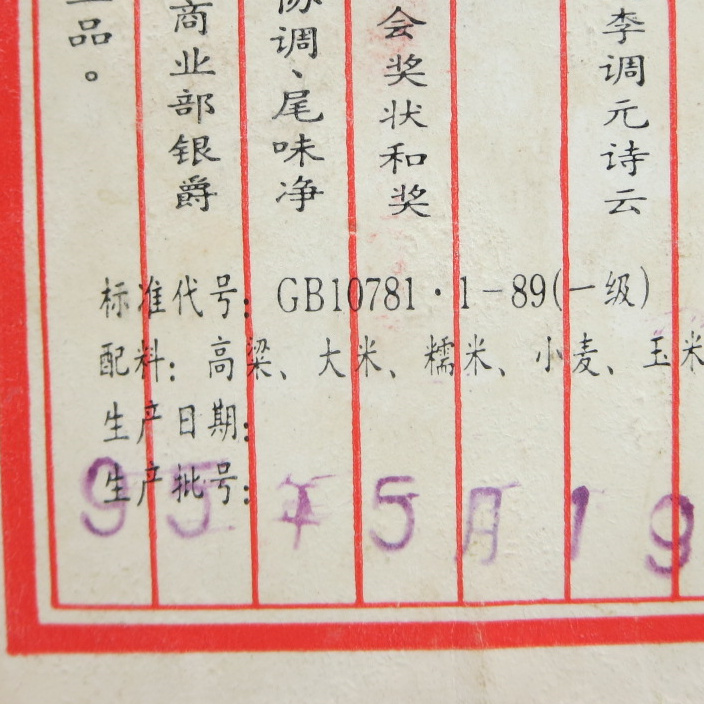 李调元诗云
会奖状和奖
协调、尾味净
商业部银爵
品。
标准代号：GB10781·1-89(一级)
配料：高粱、大米、糯米、小麦、玉米
生产日期：
生产批号：
95年5月19